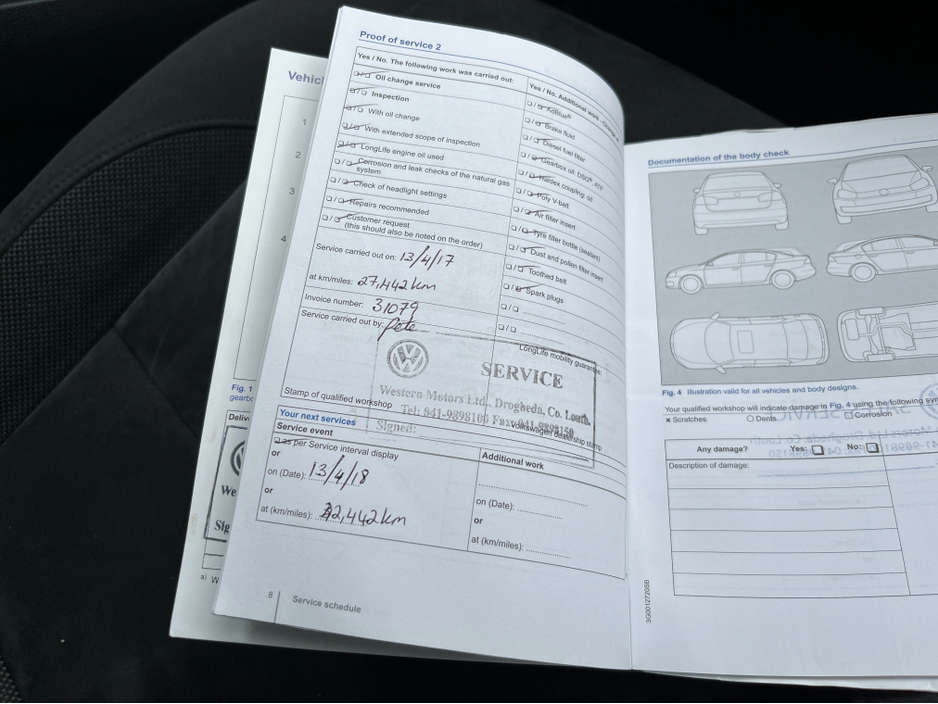 Proof of service 2
Yes / No. The following work was carried out:
Oil change service
Inspection
With oil change
With extended scope of inspection
LongLife engine oil used
Corrosion and leak checks of the natural gas
system
Check of headlight settings
Repairs recommended
Customer request
(this should also be noted on the order)
Service carried out on: 13/4/17
at km/miles: 27,442 km
Invoice number: 31079
Service carried out by: Pete
Yes / No. Additional work
AdBlue®
Brake fluid
Diesel fuel filter
Gearbox oil: DSG®
Haldex coupling: oil
Poly V-belt
Air filter insert
Tyre filler bottle (sealant)
Dust and pollen filter insert
Toothed belt
Spark plugs
LongLife mobility guarantee
SERVICE
Western Motors Ltd., Drogheda, Co. Louth.
Tel: 041-9898100 Fax: 041-9898150
Signed:
Stamp of qualified workshop
Volkswagen dealership stamp
Your next services
Service event
as per Service interval display
or
on (Date): 13/4/18
or
at (km/miles): 42,442 km
Additional work
on (Date):
or
at (km/miles):
8 Service schedule
Vehicl
1
2
3
4
Fig. 1
gearbo
Delive
We
Sig
a) W
Documentation of the body check
Fig. 4 Illustration valid for all vehicles and body designs.
Your qualified workshop will indicate damage in Fig. 4 using the following sym
× Scratches ○ Dents □ Corrosion
Any damage? Yes: No:
Description of damage:
3G0012720SB